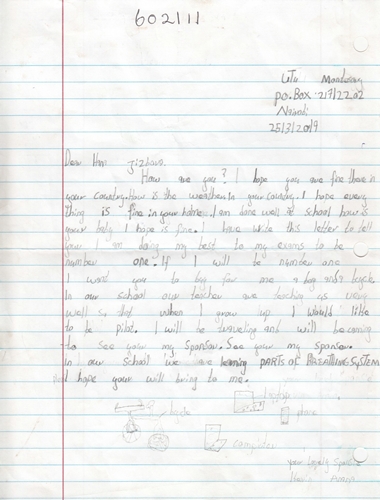 602111
po.Box 21722202
Nairobi
25/3/2019
Dear Han Jizhava
How are you? I hope you are fine there in
your country. How is the weather in your country. I hope every
thing is fine in your home. I am done well at school how is
your I hope is fine. I have write this letter to tell
your I am doing my best to my exams to be
number one. If I will be number one
I want you to buy for me a bag and a
In our school our teacher are teaching us very
well so that when I grow up I would like
to be pilot. I will be traveling and will be coming
to see your my sponsor. See your my sponsor.
In our school we are learning PARTS OF BREATHING SYSTEM
I hope your will bring to me.
phone
computer
your